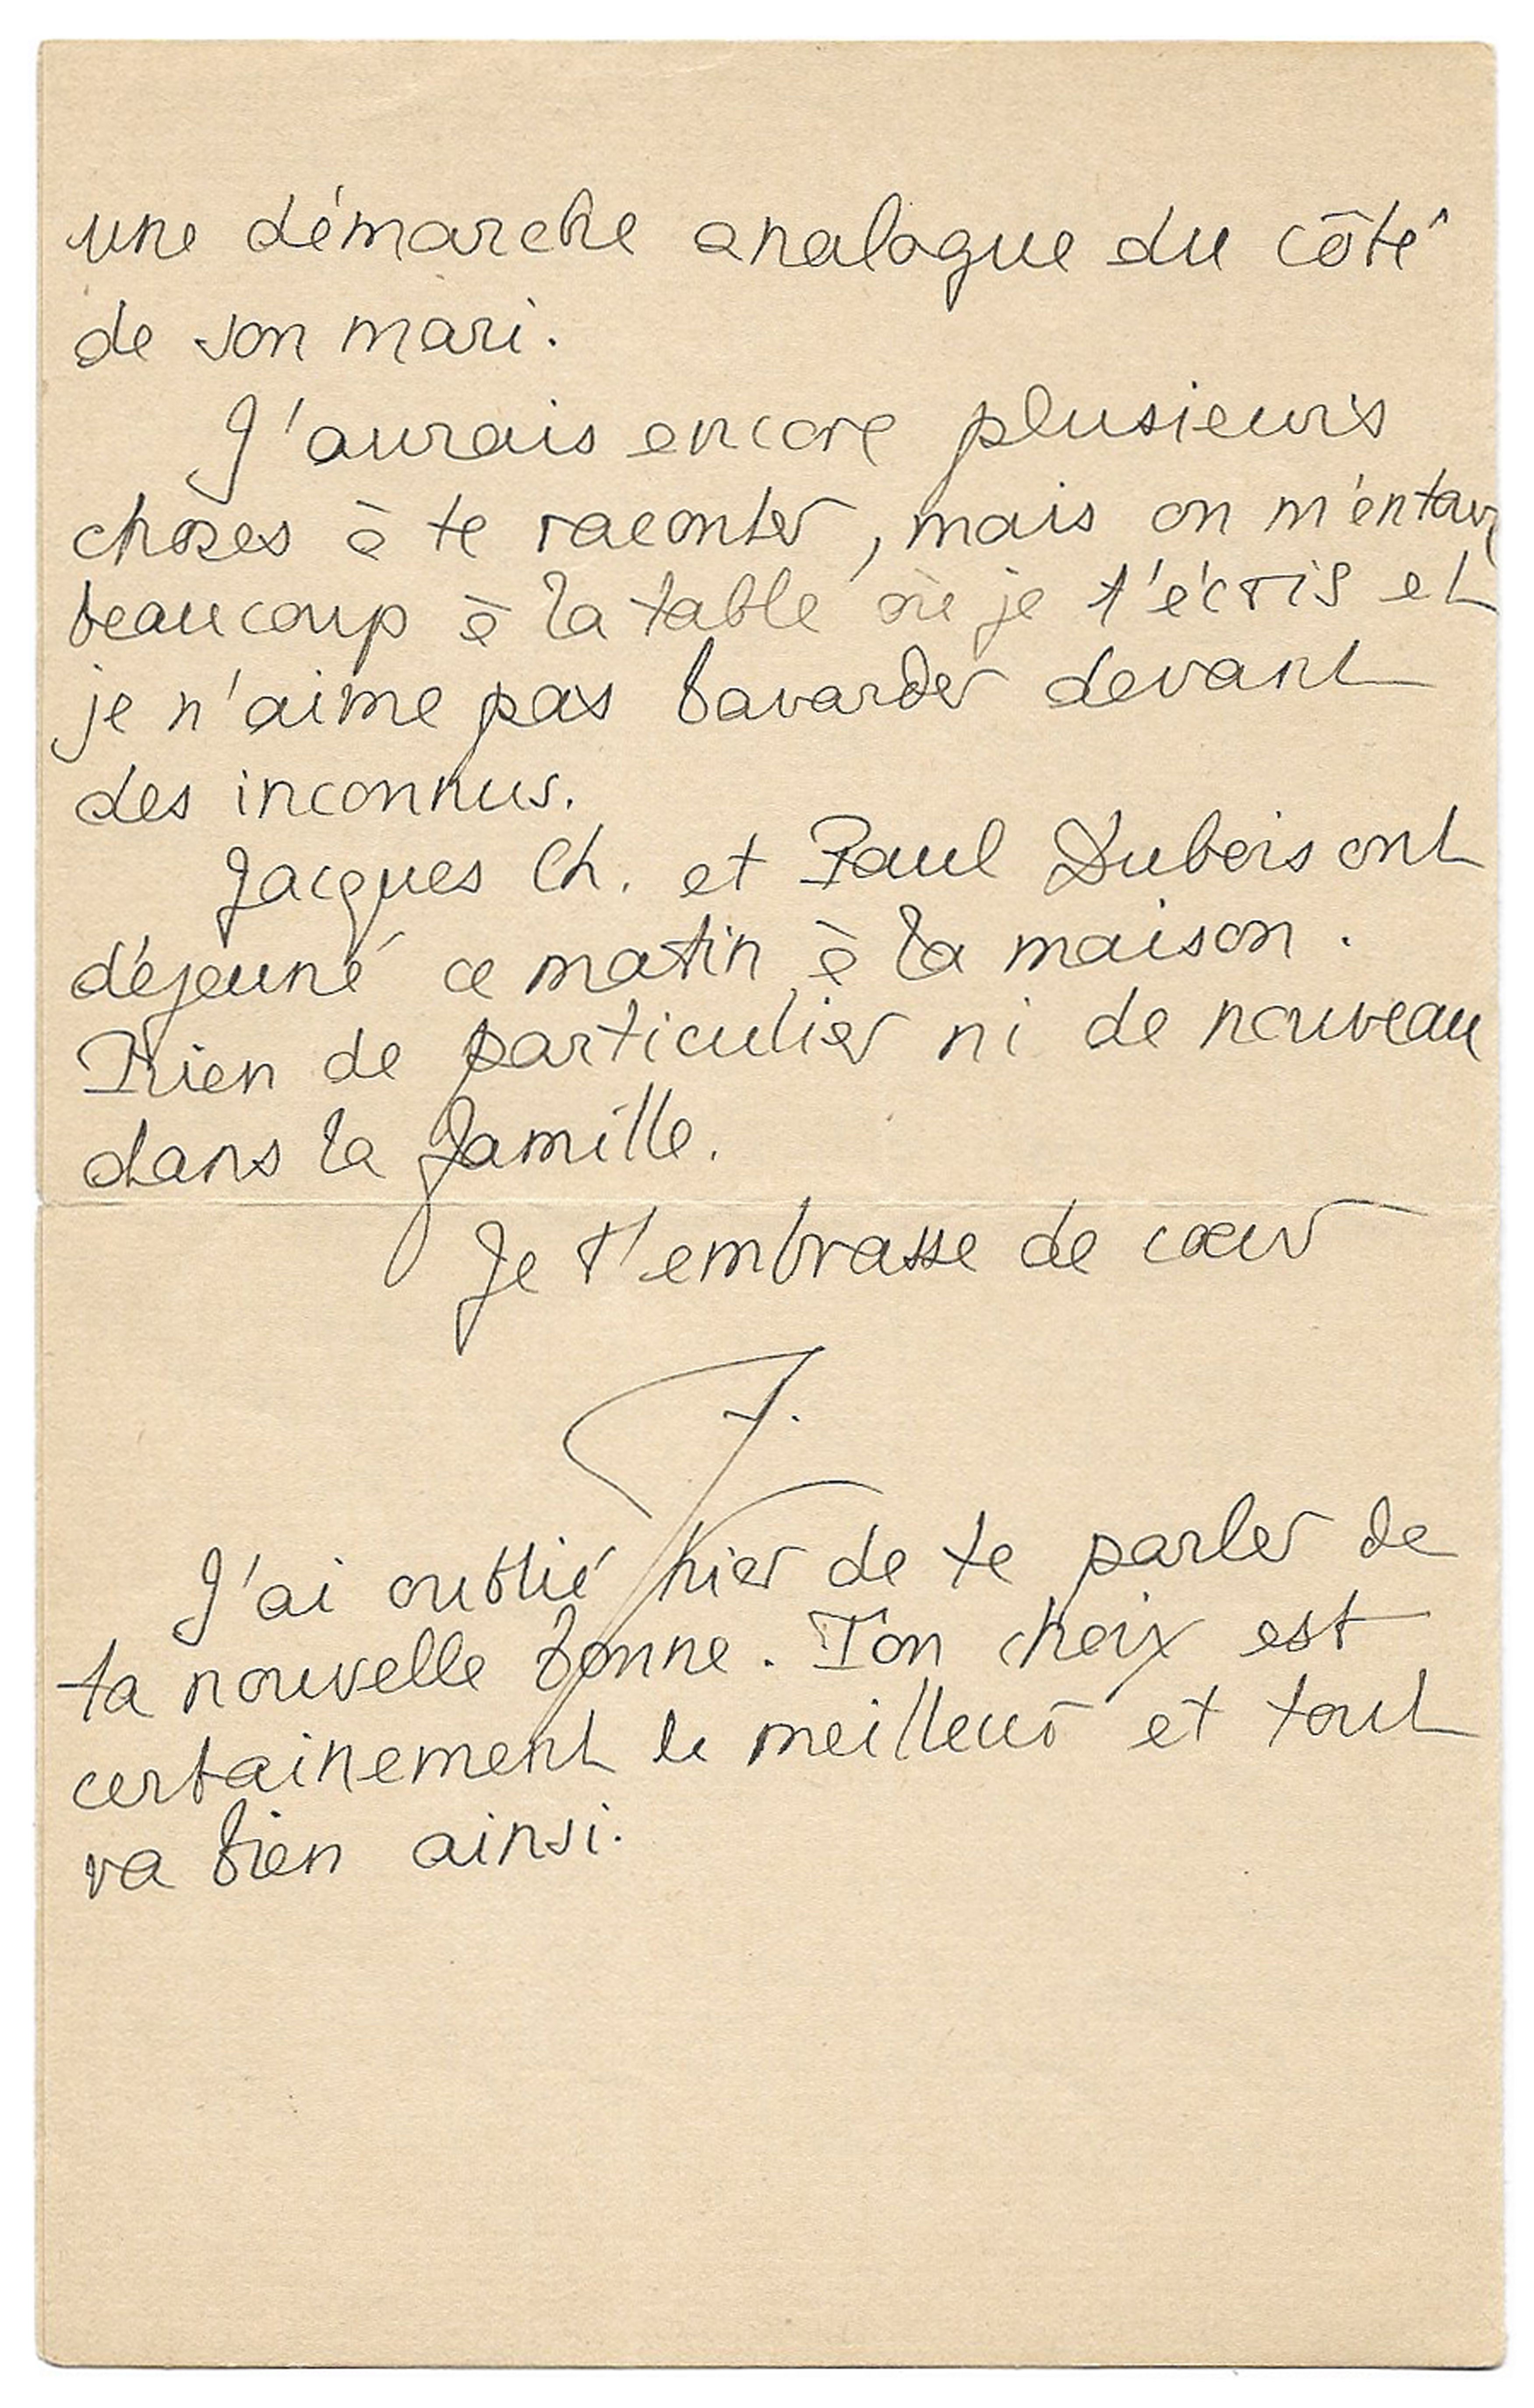 une démarche analogue du côté
de son mari.
J'aurais encore plusieurs
choses à te raconter, mais on m'entoure
beaucoup à la table où je t'écris et
je n'aime pas bavarder devant
des inconnus.
Jacques Ch. et Paul Dubois ont
déjeuné ce matin à la maison.
Rien de particulier ni de nouveau
dans la famille.
Je t'embrasse de cœur
J.
J'ai oublié hier de te parler de
ta nouvelle bonne. Ton choix est
certainement le meilleur et tout
va bien ainsi.